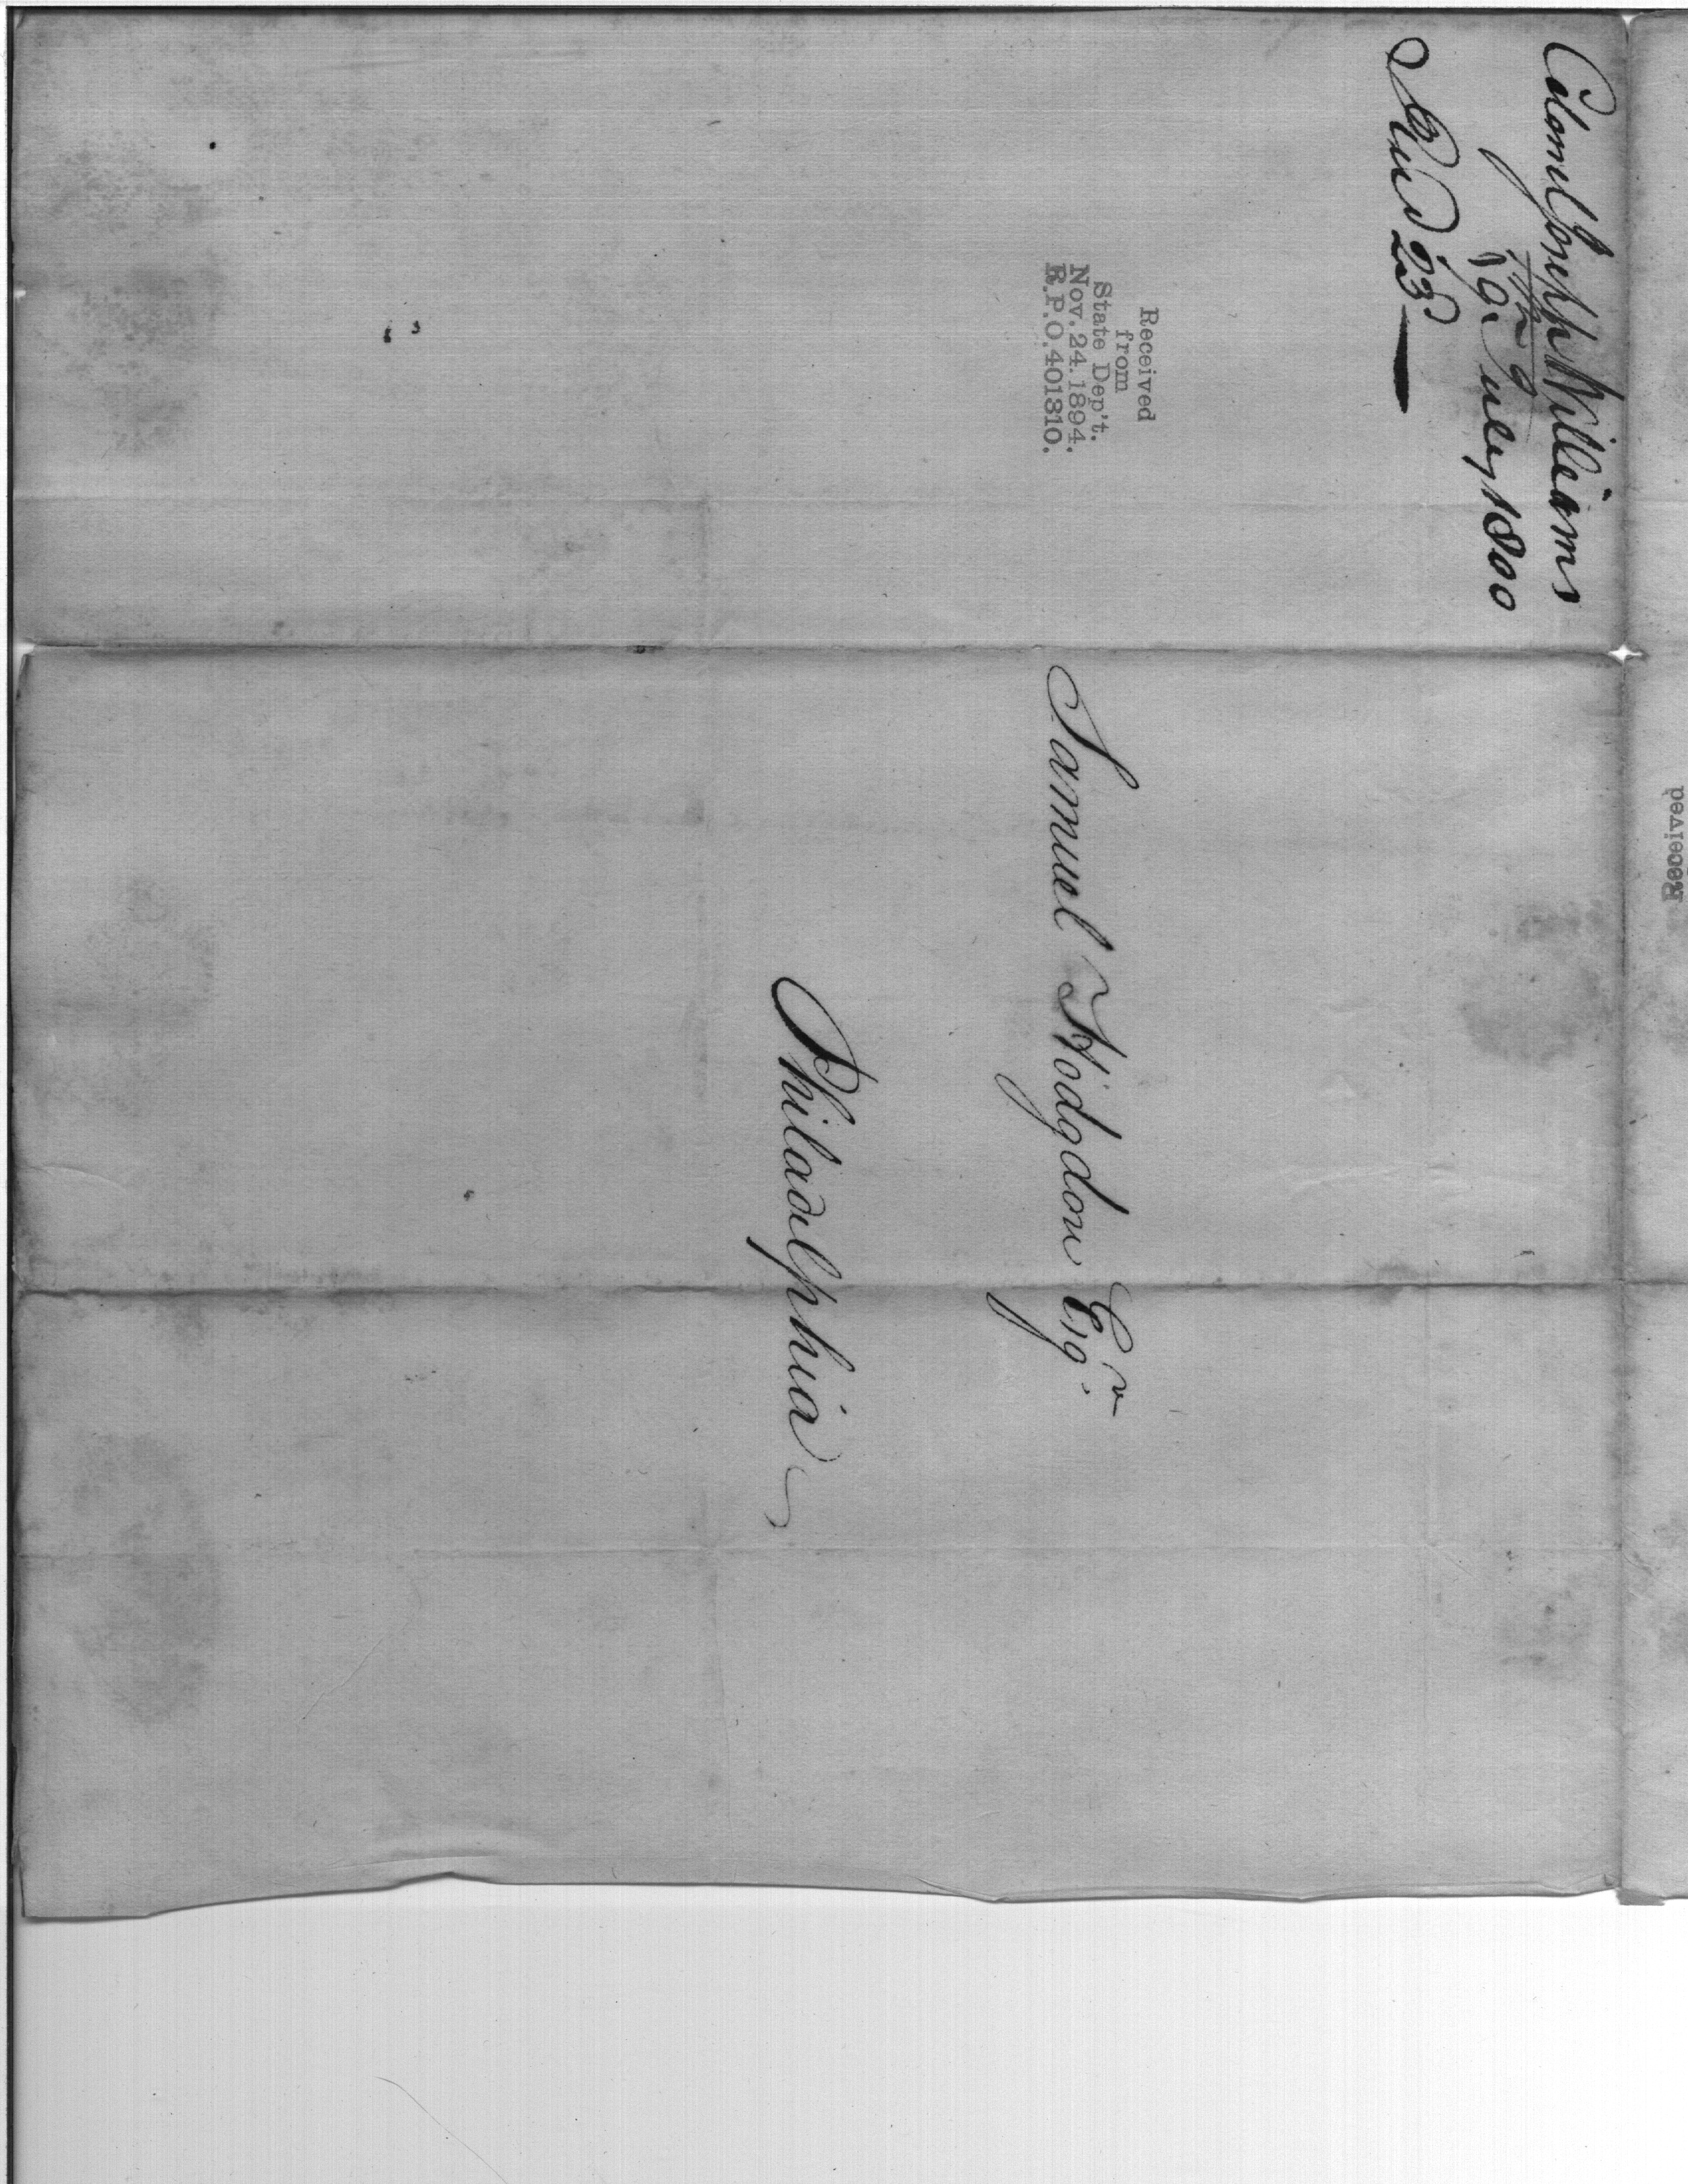 Colonel Joseph Williams
19 July 1800
Recd 23d
Received
from
State Dep't.
Nov.24.1894.
R.P.O.401310.
Samuel Hodgdon Esqr
Philadelphia
Received